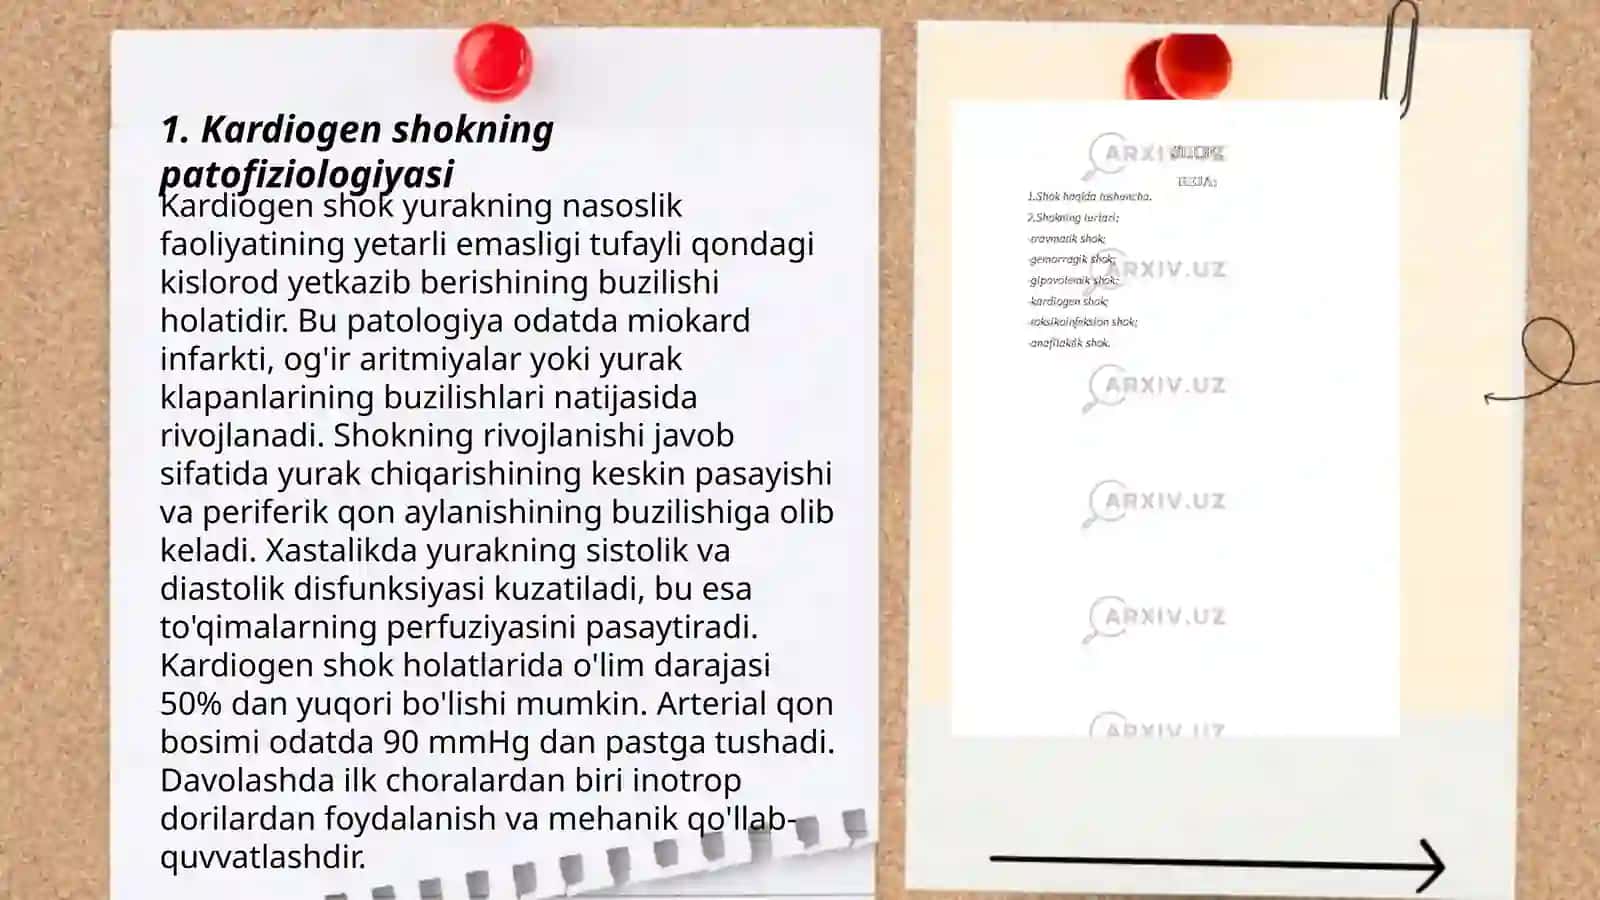 1. Kardiogen shokning
patofiziologiyasi
Kardiogen shok yurakning nasoslik
faoliyatining yetarli emasligi tufayli qondagi
kislorod yetkazib berishining buzilishi
holatidir. Bu patologiya odatda miokard
infarkti, og'ir aritmiyalar yoki yurak
klapanlarining buzilishlari natijasida
rivojlanadi. Shokning rivojlanishi javob
sifatida yurak chiqarishining keskin pasayishi
va periferik qon aylanishining buzilishiga olib
keladi. Xastalikda yurakning sistolik va
diastolik disfunksiyasi kuzatiladi, bu esa
to'qimalarning perfuziyasini pasaytiradi.
Kardiogen shok holatlarida o'lim darajasi
50% dan yuqori bo'lishi mumkin. Arterial qon
bosimi odatda 90 mmHg dan pastga tushadi.
Davolashda ilk choralardan biri inotrop
dorilardan foydalanish va mehanik qo'llab-
quvvatlashdir.
ARXIV.UZ
1.Shok haqida tushuncha.
2.Shokning turlari:
-travmatik shok;
-gemorragik shok;
ARXIV.UZ
-gipovolemik shok;
-kardiogen shok;
-toksikoinfeksion shok;
-anafilaktik shok.
ARXIV.UZ
ARXIV.UZ
ARXIV.UZ
ARXIV.UZ